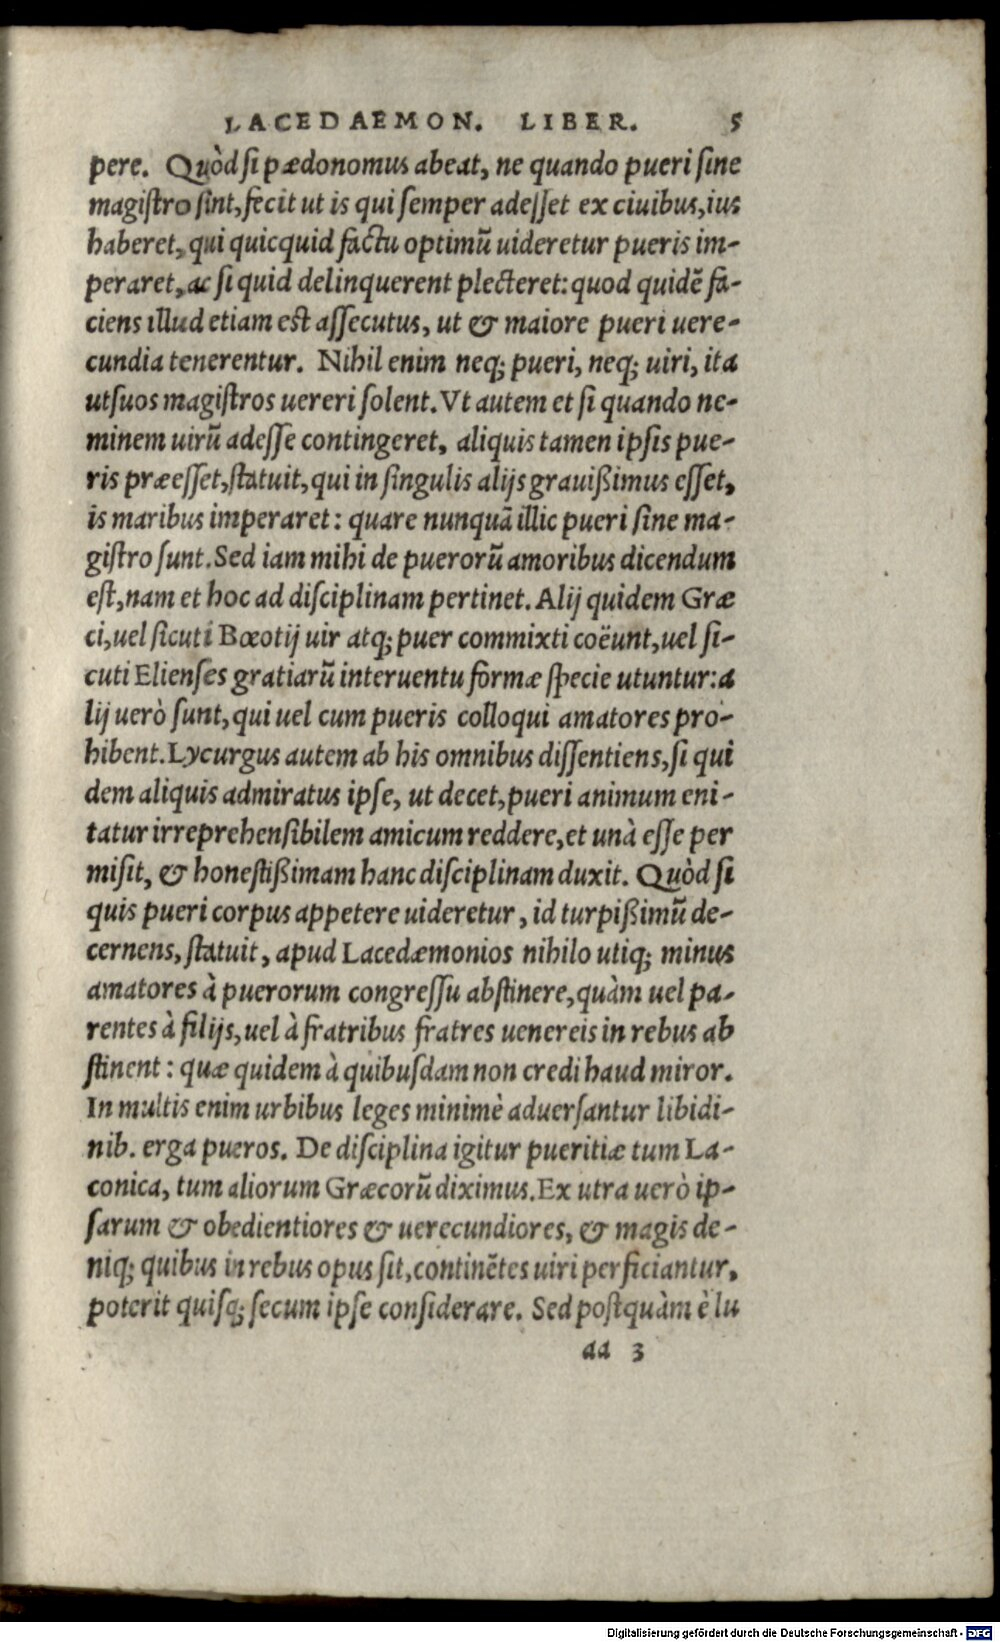 LACEDAEMON. LIBER. 5
pere. Quòd si pædonomus abeat, ne quando pueri sine
magistro sint, fecit ut is qui semper adesset ex ciuibus, ius
haberet, qui quicquid factu optimũ uideretur pueris im-
peraret, ac si quid delinquerent plecteret: quod quidẽ fa-
ciens illud etiam est assecutus, ut & maiore pueri uere-
cundia tenerentur. Nihil enim neq; pueri, neq; uiri, ita
ut suos magistros uereri solent. Vt autem et si quando ne-
minem uirũ adesse contingeret, aliquis tamen ipsis pue-
ris præesset, statuit, qui in singulis alijs grauißimus esset,
is maribus imperaret: quare nunquã illic pueri sine ma-
gistro sunt. Sed iam mihi de puerorũ amoribus dicendum
est, nam et hoc ad disciplinam pertinet. Alij quidem Græ
ci, uel sicuti Bœotij uir atq; puer commixti coëunt, uel si-
cuti Elienses gratiarũ interuentu formæ specie utuntur: a
lij uerò sunt, qui uel cum pueris colloqui amatores pro-
hibent. Lycurgus autem ab his omnibus dissentiens, si qui
dem aliquis admiratus ipse, ut decet, pueri animum eni-
tatur irreprehensibilem amicum reddere, et unà esse per
misit, & honestißimam hanc disciplinam duxit. Quòd si
quis pueri corpus appetere uideretur, id turpißimũ de-
cernens, statuit, apud Lacedæmonios nihilo utiq; minus
amatores à puerorum congressu abstinere, quàm uel pa-
rentes à filijs, uel à fratribus fratres uenereis in rebus ab
stinent: quæ quidem à quibusdam non credi haud miror.
In multis enim urbibus leges minimè aduersantur libidi-
nib. erga pueros. De disciplina igitur pueritiæ tum La-
conica, tum aliorum Græcorũ diximus. Ex utra uerò ip-
sarum & obedientiores & uerecundiores, & magis de-
niq; quibus in rebus opus sit, continẽtes uiri perficiantur,
poterit quisq; secum ipse considerare. Sed postquàm è lu
aa 3
Digitalisierung gefördert durch die Deutsche Forschungsgemeinschaft - DFG